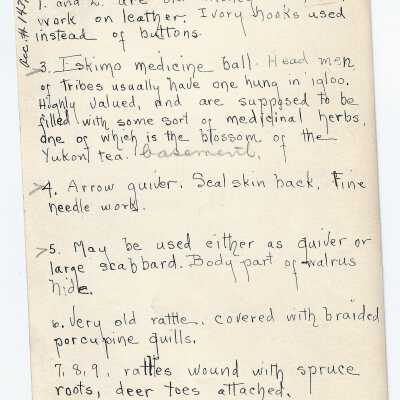 Acc. #
1. and 2. are old
work on leather. Ivory hooks used
instead of buttons.
3. Eskimo medicine ball. Head men
of tribes usually have one hung in igloo.
Highly valued, and are supposed to be
filled with some sort of medicinal herbs,
one of which is the blossom of the
Yukon tea. basement.
4. Arrow quiver. Seal skin back. Fine
needle work.
5. May be used either as quiver or
large scabbard. Body part of walrus
hide.
6. Very old rattle, covered with braided
porcupine quills.
7, 8, 9, rattles wound with spruce
roots, deer toes attached.